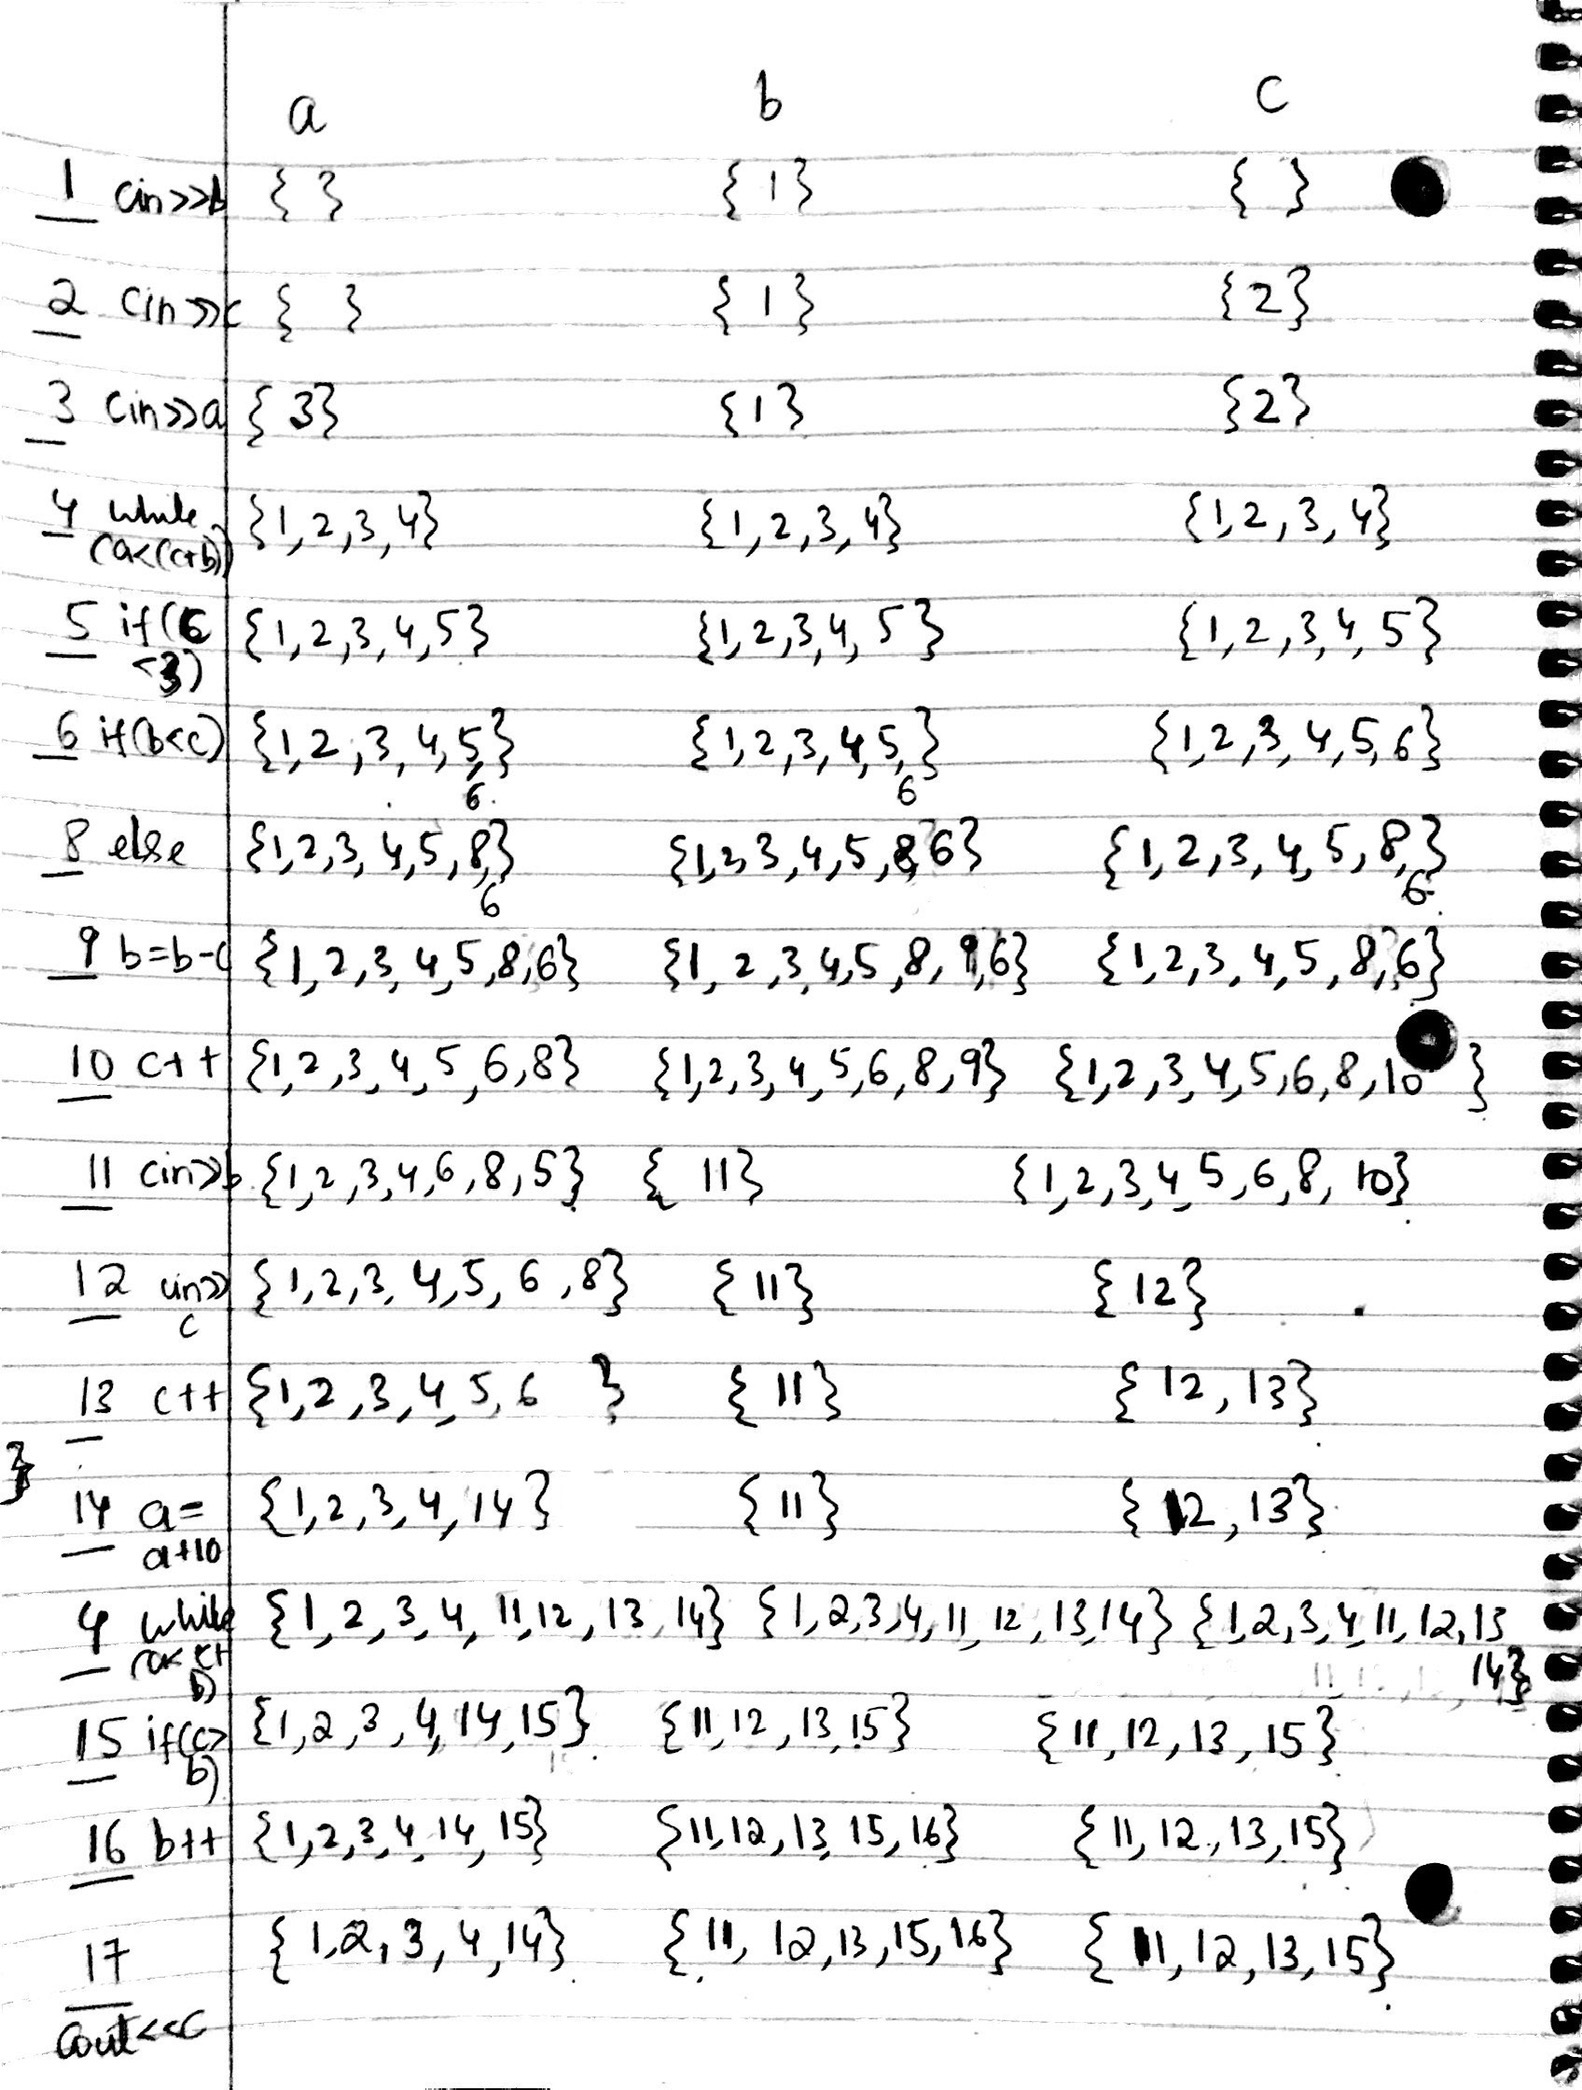 a b c
1 cin>>b { } { 1 } { }
2 cin>>c { } { 1 } { 2 }
3 cin>>a { 3 } { 1 } { 2 }
4 while {1,2,3,4} {1,2,3,4} {1,2,3,4}
(a<(c+b))
5 if(6 {1,2,3,4,5} {1,2,3,4,5} {1,2,3,4,5}
<3)
6 if(b<c) {1,2,3,4,5,} {1,2,3,4,5,} {1,2,3,4,5,6}
6 6
8 else {1,2,3,4,5,8,} {1,2,3,4,5,8,6} {1,2,3,4,5,8,}
6 6
9 b=b-c {1,2,3,4,5,8,6} {1,2,3,4,5,8,9,6} {1,2,3,4,5,8,6}
10 c++ {1,2,3,4,5,6,8} {1,2,3,4,5,6,8,9} {1,2,3,4,5,6,8,10 }
11 cin>>b {1,2,3,4,6,8,5} { 11} {1,2,3,4,5,6,8,10}
12 cin>> {1,2,3,4,5,6,8} {11} {12}
c
13 c++ {1,2,3,4,5,6 } {11} {12,13}
}
14 a= {1,2,3,4,14} {11} {12,13}
a+10
4 while {1,2,3,4,11,12,13,14} {1,2,3,4,11,12,13,14} {1,2,3,4,11,12,13
(a< c+ 14}
b)
15 if(c> {1,2,3,4,14,15} {11,12,13,15} {11,12,13,15}
b)
16 b++ {1,2,3,4,14,15} {11,12,13,15,16} {11,12,13,15}
17 {1,2,3,4,14} {11,12,13,15,16} {11,12,13,15}
cout<<c